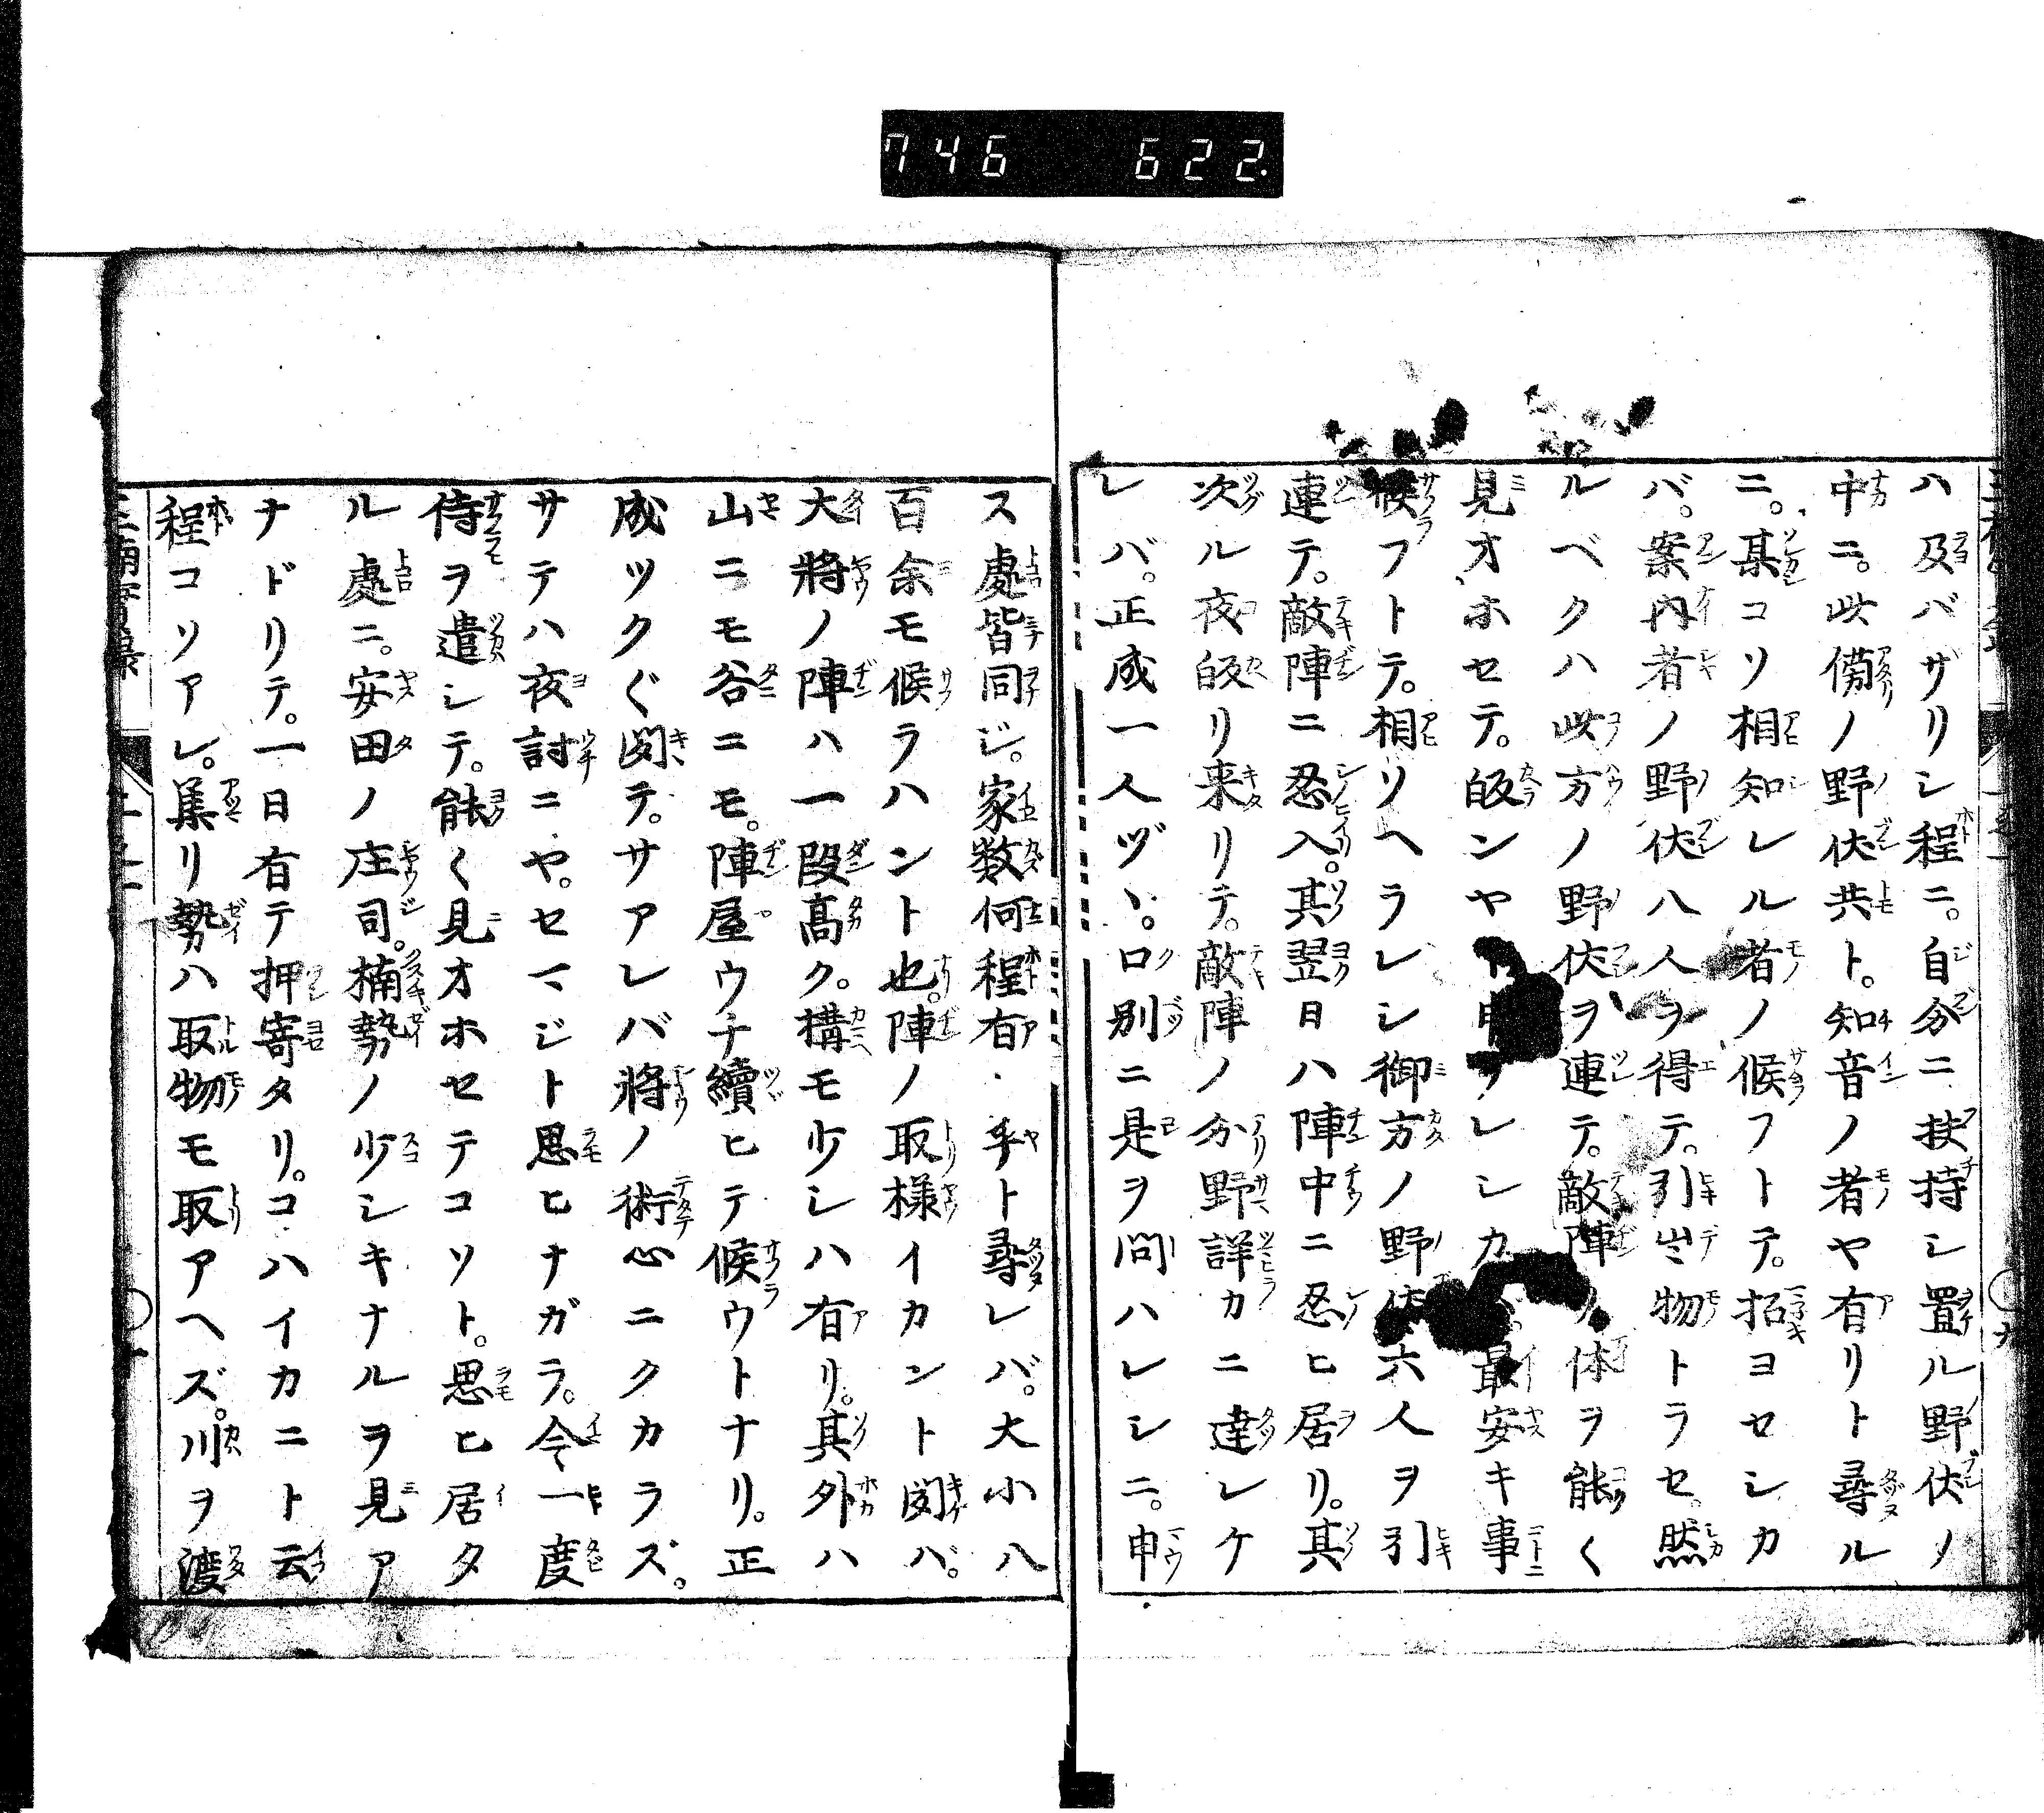 746 622.
ハ及バザリシ程ニ。自分ニ扶持シ置ル野伏ノ
中ニ。此傍ノ野伏共ト。知音ノ者ヤ有リト尋ル
ニ。某コソ相知レル者ノ候フトテ。招ヨセシカ
バ。案内者ノ野伏八人ヲ得テ。引出物トラセ。然
ルベクハ此方ノ野伏ヲ連テ。敵陣ノ体ヲ能く
見オホセテ。皈ンヤト申サレシカ最安キ事
候フトテ。相ソヘラレシ御方ノ野伏六人ヲ引
連テ。敵陣ニ忍入。其翌日ハ陣中ニ忍ヒ居リ。其
次ル夜皈リ来リテ。敵陣ノ分野詳カニ達レケ
レバ。正成一人ヅヽ。口別ニ是ヲ問ハレシニ。申
ス處皆同ジ。家数何程有乎ト尋レバ。大小八
百余モ候ラハント也。陣ノ取様イカント聞バ。
大將ノ陣ハ一段高ク。構モ少シハ有リ。其外ハ
山ニモ谷ニモ。陣屋ウチ續ヒテ候ウトナリ。正
成ツクぐ聞テ。サアレバ將ノ術心ニクカラズ。
サテハ夜討ニヤ。セマジト思ヒナガラ。今一度
侍ヲ遣シテ。能く見オホセテコソト。思ヒ居タ
ル處ニ。安田ノ庄司。楠勢ノ少シキナルヲ見ア
ナドリテ。一日有テ押寄タリ。コハイカニト云
程コソアレ。集リ勢ハ取物モ取アヘズ。川ヲ渡